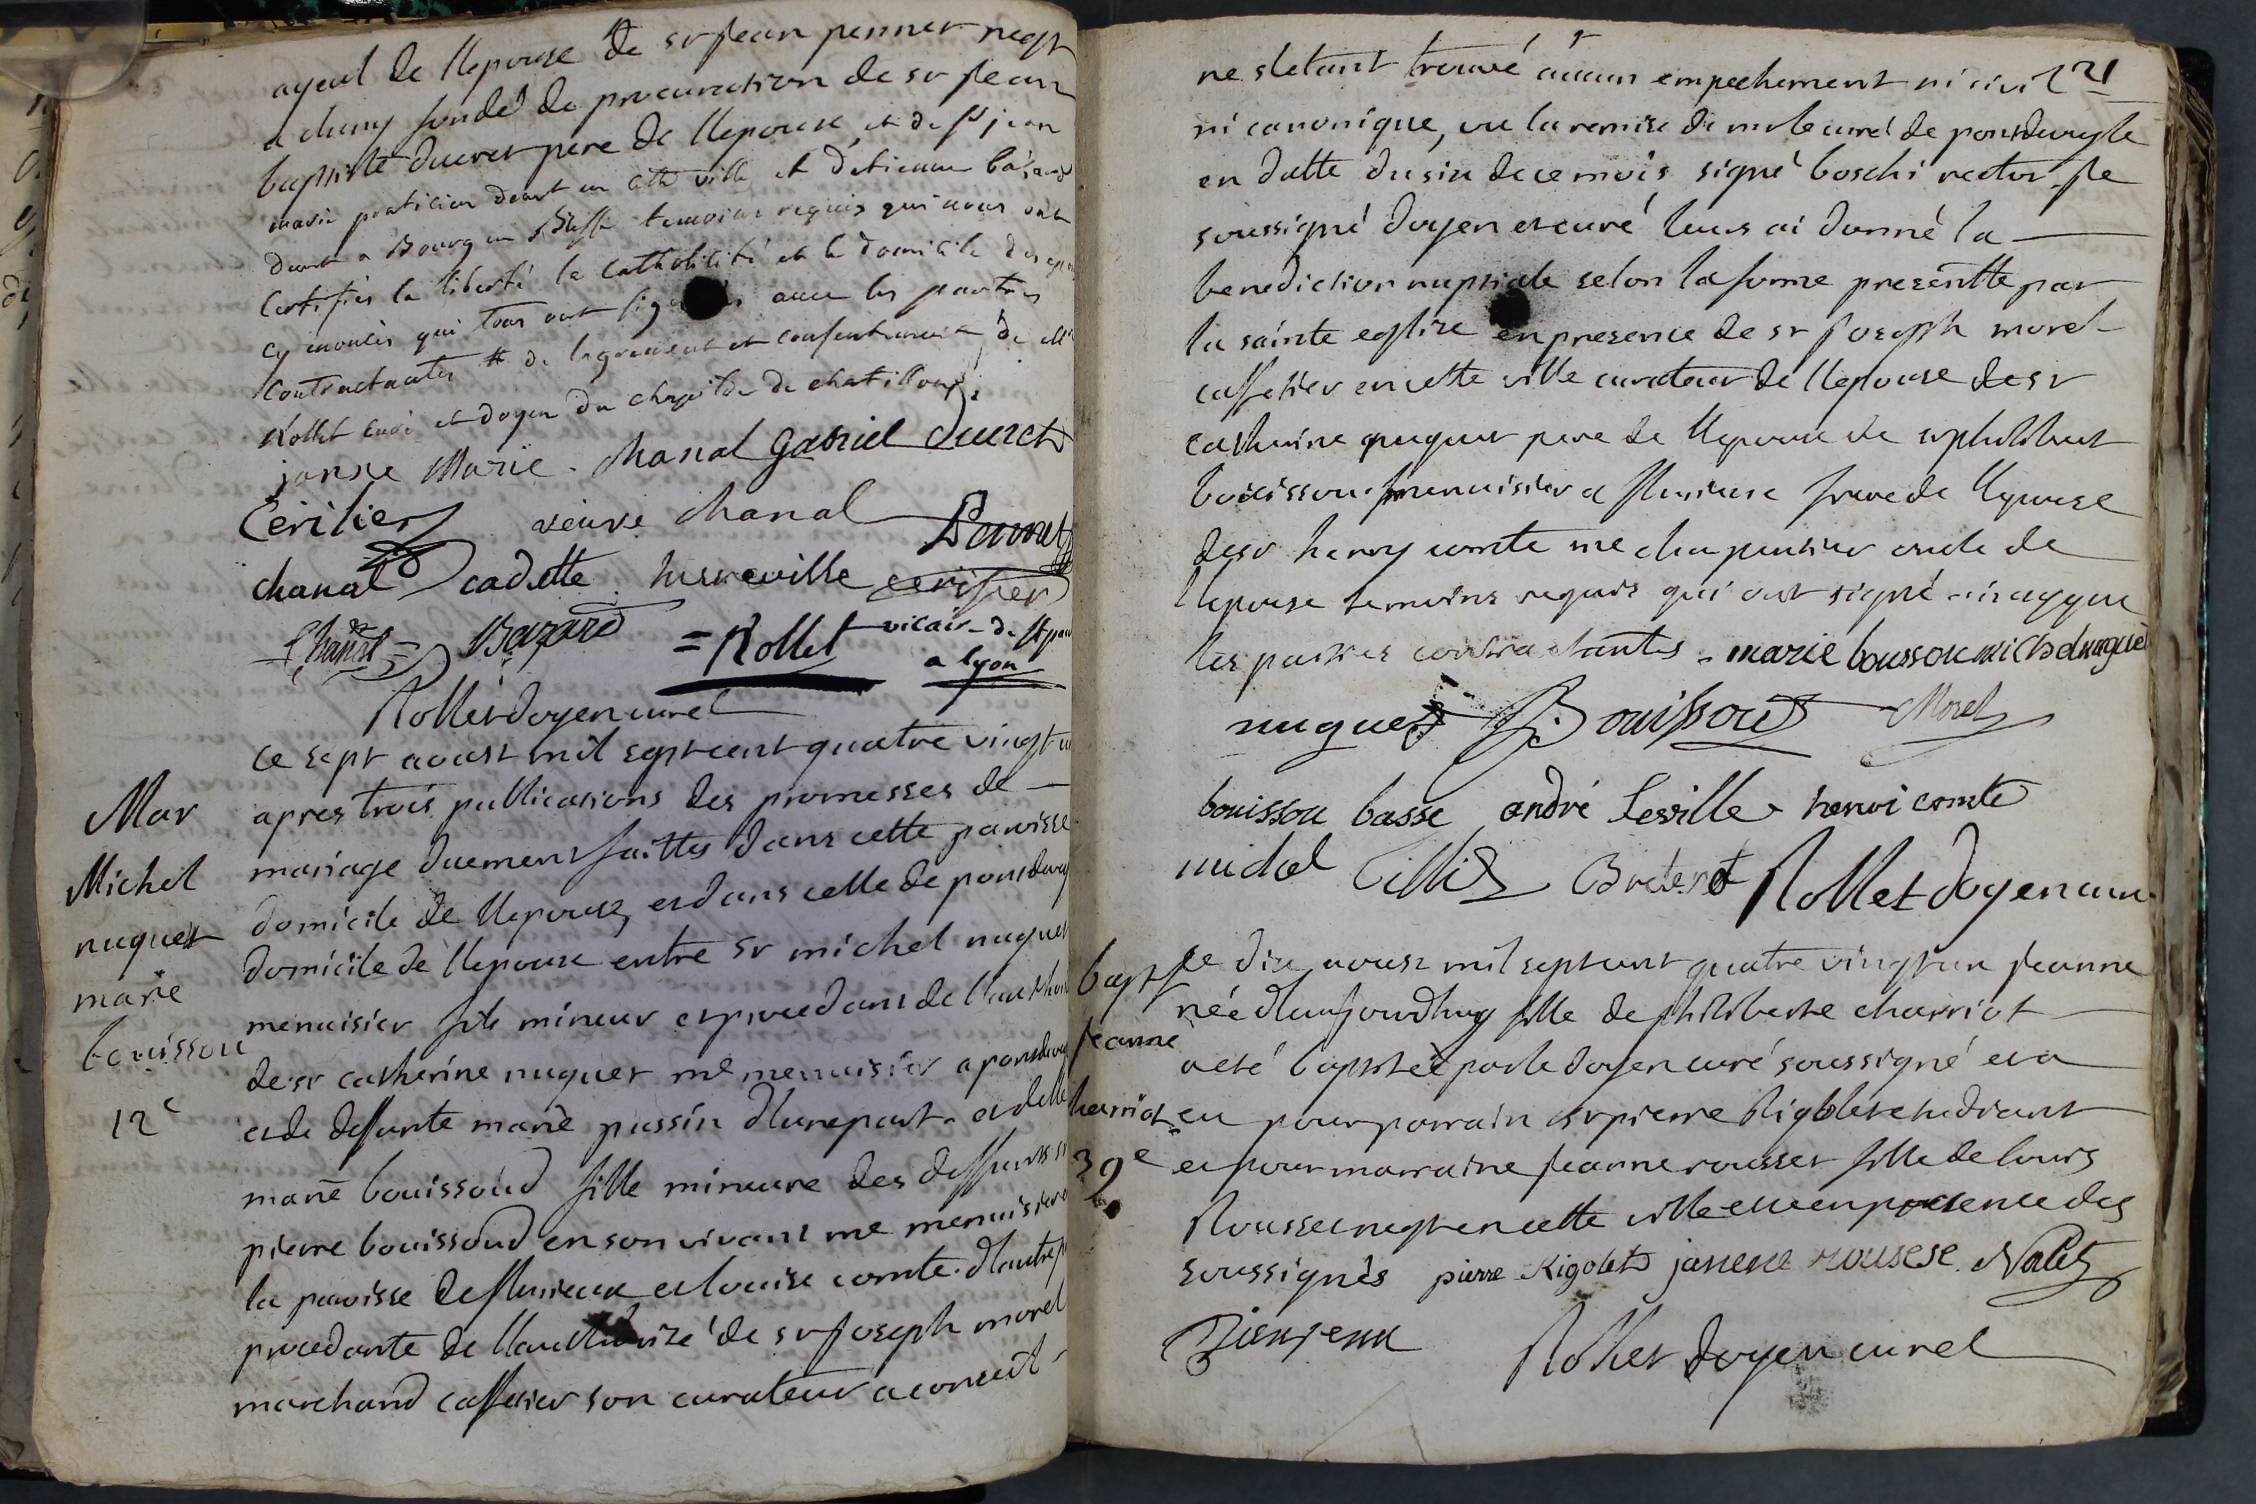 ayeul de l'epouse de sr jean perret negt
a cluny fondé de procuration de sr jean
baptiste ducret pere de l'epouse, et de sr jean
marie praticien demt en cette ville et d'etienne bazard
demt a Bourg en Bresse temoins requis qui nous ont
certifiés la liberté la catholicité et le domicile des
cy qui tous ont avec les parties
contractantes # de l'agrement et consentement de
Rollet curé et doyen du chapitre de chatillon
janne Marie chanal Gabriel Ducret
Cerilier veuve chanal Perrret
chanal cadette cerisier
Chanal Bazard = Rollet vicair de st
a lyon
Rollet doyen curé
Ce sept aoust mil sept cent quatre vingt un
apres trois publications des promesses de
mariage duement faittes dans cette paroisse
domicile de l'epouse, et dans celle de pontdevey
domicile de l'epoux entre sr michel nuguet
menuisier fils mineur et procedant de l'auth
de sr catherine nuguet me menuisier a pontdevey
et de deffunte marie passin d'une part. et delle
marie bouissoud fille mineure des deffunts sr
pierre bouissoud en son vivant me menuisier
la paroisse de flurieux et louise comte d'autre p
procedante de l'authorité de sr joseph morel
marchand caffetier son curateur a conseil
Mar
Michel
nuguet
marie
bouissou
12e
21
ne s'etant trouvé aucun empechement ni civil
ni canonique, vu la remise de mr le curé de pontdevesle
en datte du six de ce mois signé boschi rector. je
soussigné doyen et curé leurs ai donné la
benediction nuptiale selon la forme presentte par
la sainte eglise en presence de sr joseph morel
caffetier en cette ville curateur de l'epouse de sr
catherine nuguet pere de l'epoux de sr philibert
bouissou menuisier a flurieux frere de l'epouse
de sr henry comte me charpentier oncle de
l'epouse temoins requis qui ont signé
les parties contractantes. marie boussou michel nuguet
nuguet Bouissoud Morel
bouissou basse andré Leville henri comte
michel Rollet doyen curé
bapt
jeanne
harriot
39e
Le dix aoust mil sept cent quatre vingt un jeanne
née d'aujourdhuy fille de philiberte charriot
a eté baptisée par le doyen curé soussigné et a
eu pour parrain sr pierre Rigolet etudiant
et pour marraine jeanne rousset fille de louis
Rousset negt en cette ville et ce en presence des
soussignés pierre Rigolet janene rousese
Rollet doyen curé